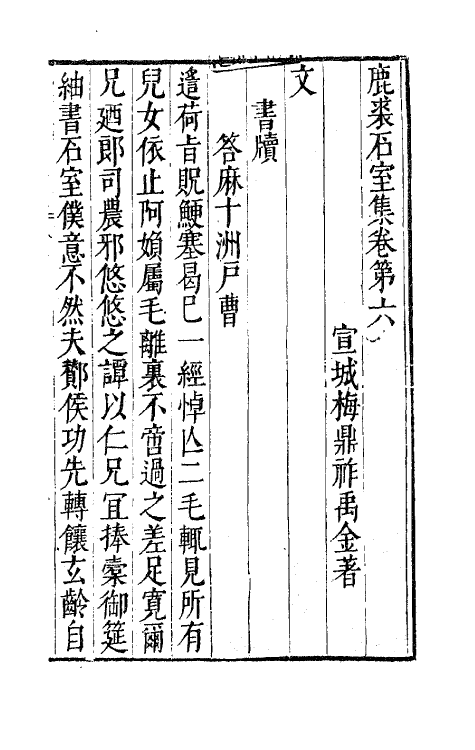 鹿裘石室集卷第六
宣城梅鼎祚禹金著
文
書牘
答麻十洲戶曹
遣荷旨貺鯁塞曷已一經悼亾二毛輒見所有
兒女依止阿嬪屬毛離裏不啻過之差足寬爾
兄廼郎司農邪悠悠之譚以仁兄冝捧橐御筵
紬書石室僕意不然夫酇侯功先轉饟玄齡自